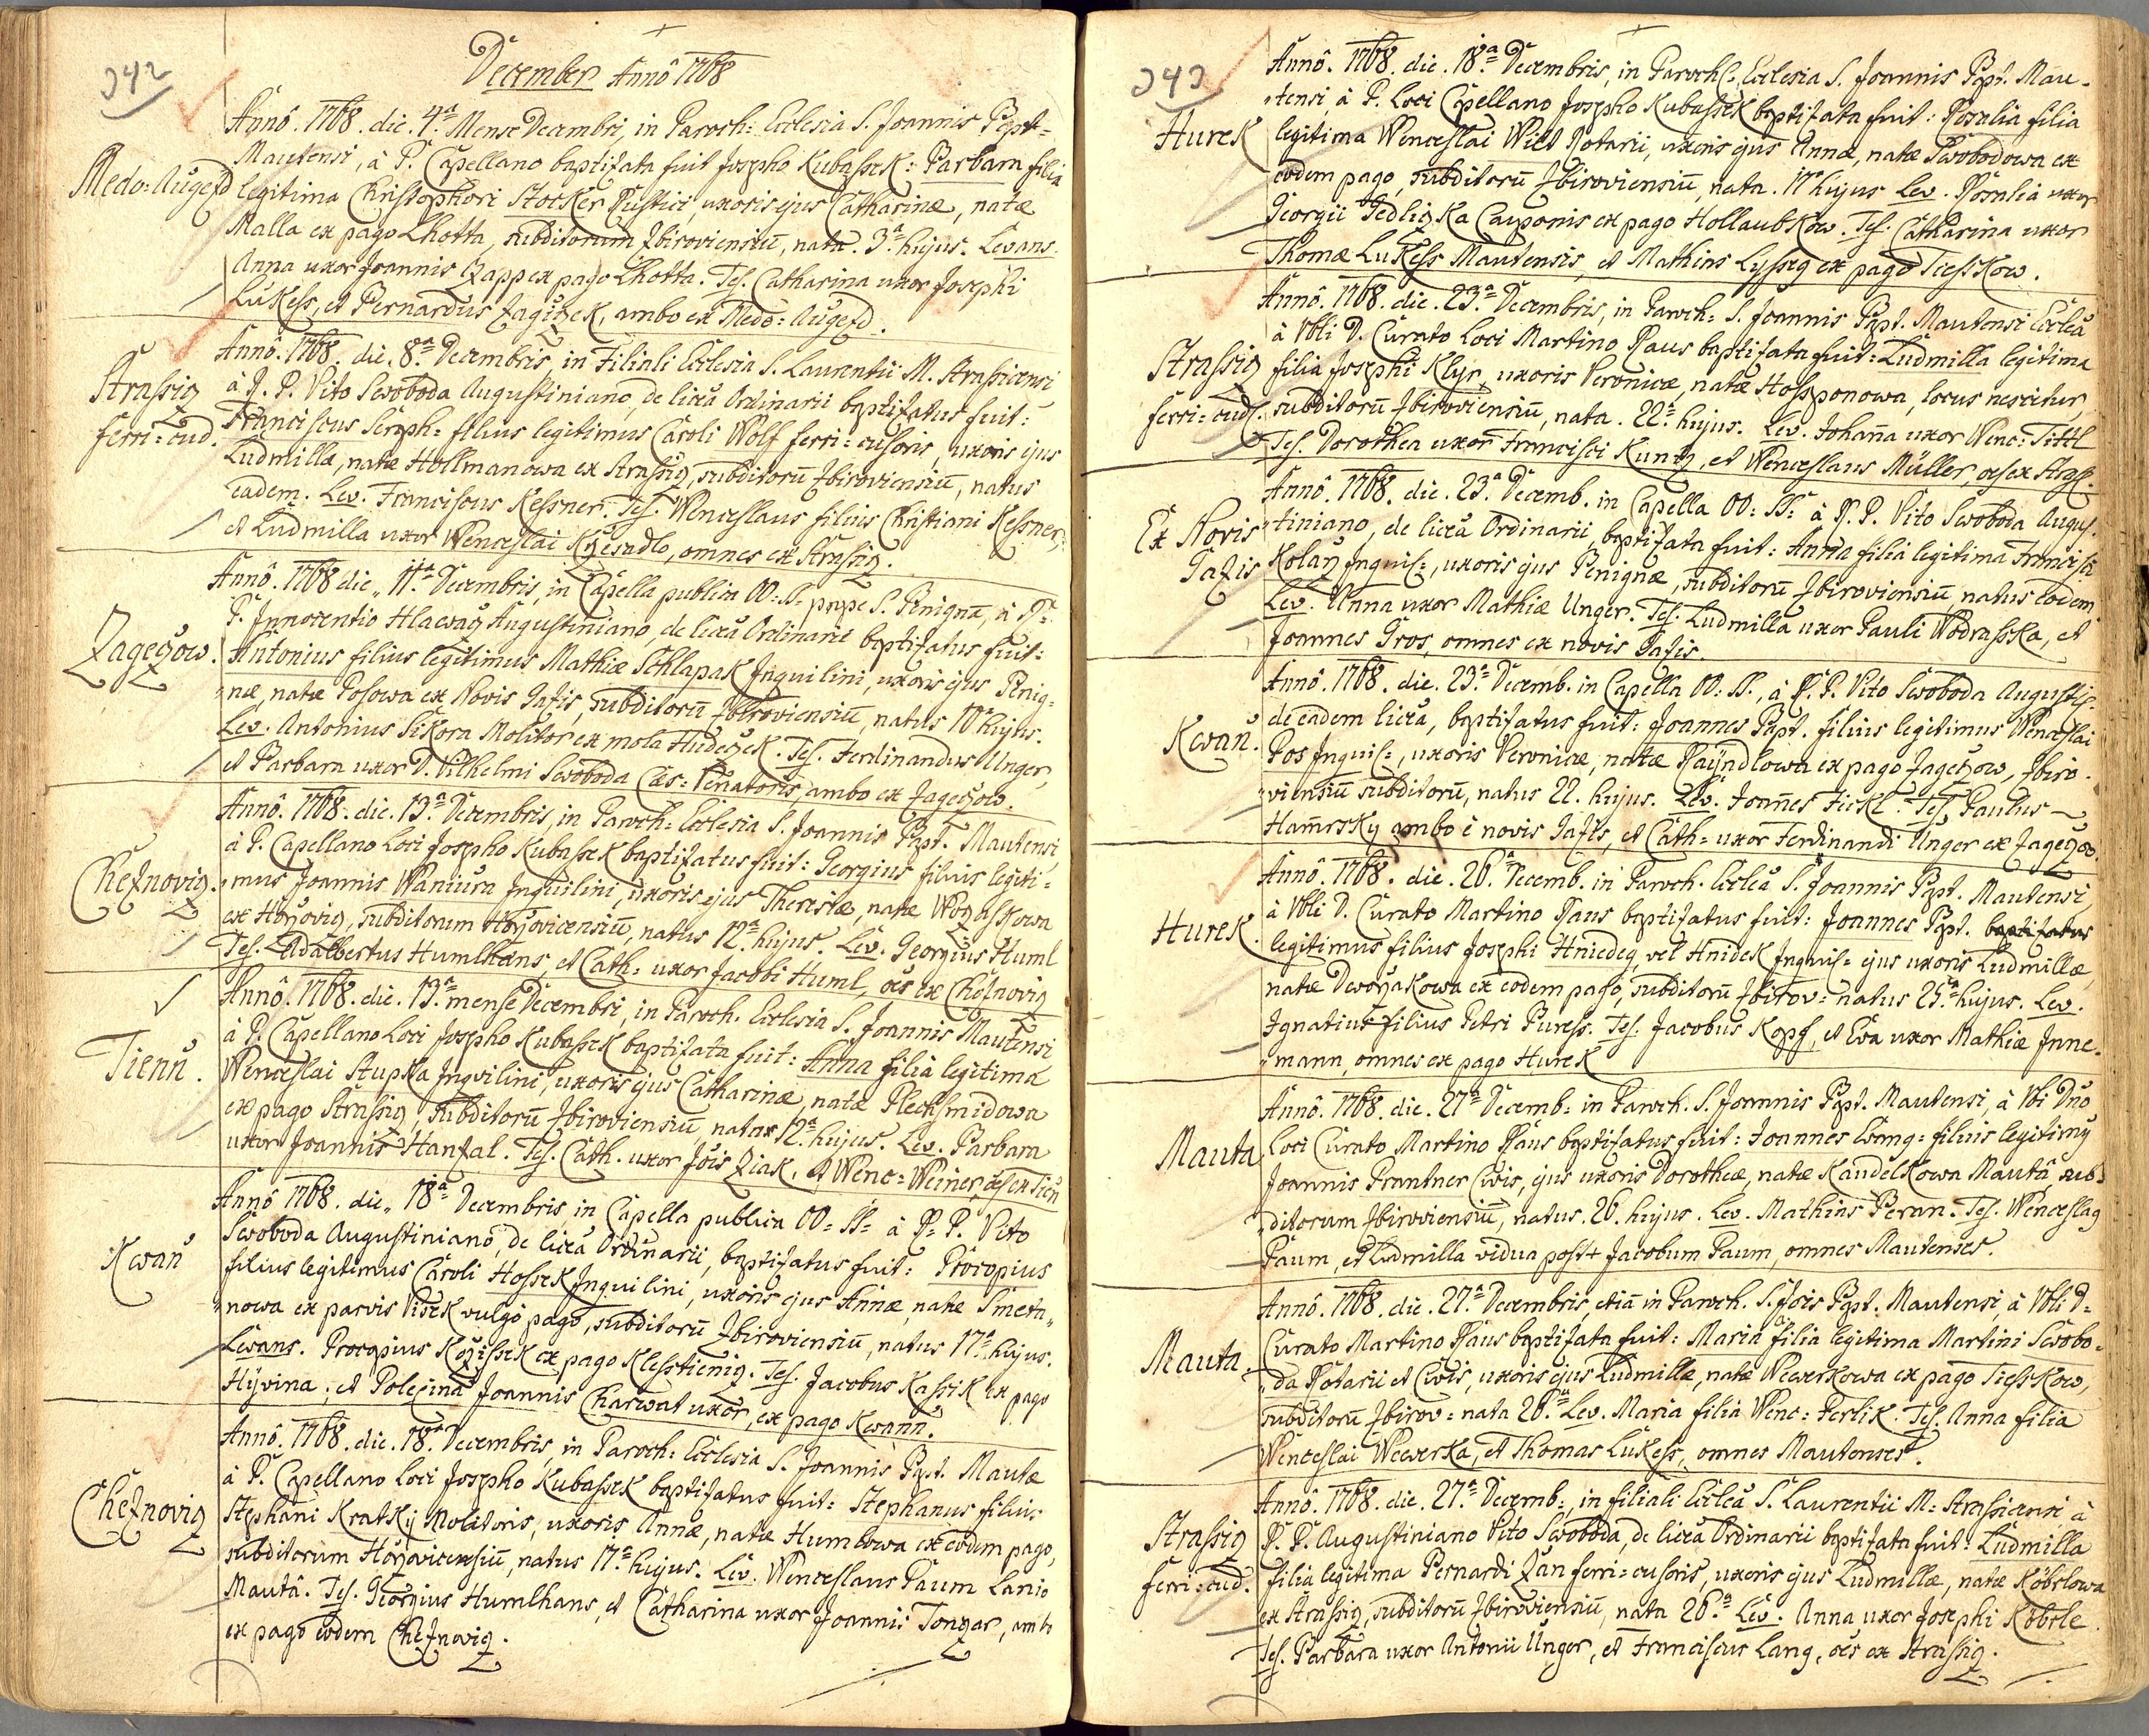 342
December Annô 1768
Annô. 1768. die. 4.ª Mense Decembri, in Paroch: Ecclesia S. Joannis Bapt=
Mautensi, à P. Capellano baptizata fuit Josepho Kubassek: Barbara filia
Medo=Augezd legitima Christophori Stocker Rustici, uxoris ejus Catharinæ, natæ
Malla ex pago Lhotta, subditorum Zbiroviensiũ, nata. 3.ª hujus. Levans.
Anna uxor Joannis Zapp ex pago Lhotta. Tes. Catharina uxor Josephi
Lukess, et Bernardus Zagiczek, ambo ex Medo=Augezd.
Annô. 1768. die. 8.ª Decembris, in Filiali Ecclesia S. Laurentii M. Strassicensi
Strassicz à P. P. Vito Swoboda Augustiniano, de licea Ordinarii baptizatus fuit:
ferri=cud. Franciscus Seraph= filius legitimus Caroli Wolf ferri=cusoris, uxoris ejus
Ludmillæ, natæ Hollmanowa ex Strassicz, subditorũ Zbiroviensiũ, natus
eadem. Lev. Franciscus Kessner. Tes. Wenceslaus filius Christiani Kessner,
et Ludmilla uxor Wenceslai Krzesadlo, omnes ex Strassicz.
Annô. 1768 die,, 11.ª Decembris, in Capella publica OO=SS= prope S. Benignã, à R=
P. Innocentio Hlawacz Augustiniano, de licea Ordinarii baptizatus fuit=
Zageczow. Antonius filius legitimus Mathiæ Schlapak Inquilini, uxoris ejus Benig=
næ, natæ Posowa ex Novis Jazis, subditorũ Zbiroviensiũ, natus 10ª hujus.
Lev. Antonius Sikora Molitor ex mola Hudeczek. Tes. Ferdinandus Unger,
et Barbara uxor D. Wilhelmi Swoboda Cæs=Venatoris, ambo ex Zageczow.
Annô. 1768. die. 13.ª Decembris, in Paroch: Ecclesia S. Joannis Bapt. Mautensi,
à P. Capellano Loci Josepho Kubassek baptizatus fuit: Georgius filius legiti=
Cheznovicz. mus Joannis Waniura Inquilini, uxoris ejus Theresiæ, natæ
ex Horzovicz, subditorum Horzovicensiũ, natus 12.ª hujus. Lev. Georgius Huml
Tes. Adalbertus Humlhans, et Cath= uxor Jacobi Huml, oẽs ex Cheznovicz
Annô. 1768. die. 13.ª mense Decembri, in Paroch. Ecclesia S. Joannis Mautensi
à P. Capellano Loci Josepho Kubassek baptizata fuit: Anna filia legitima
Tienũ. Wenceslai Stupka Inquilini, uxoris ejus Catharinæ, natæ Plechsmidowa
ex pago Strassicz, subditorũ Zbiroviensiũ, nata 12.ª hujus. Lev. Barbara
uxor Joannis Hanzal. Tes. Cath. uxor Jois Ziak, et Wenc=Weiner, oẽs ex Tien
Annô 1768. die,, 18.ª Decembris, in Capella publica OO=SS= à R. P. Vito
Swoboda Augustiniano, de licea Ordinarii, baptizatus fuit: Procopius
Kwañ filius legitimus Caroli Hossek Inquilini, uxoris ejus Annæ, natæ Smeta,,
nowa ex parvis Visek vulgo pago, subditorũ Zbiroviensiũ, natus 17.ª hujus.
Levans. Procopius Kozissek ex pago Klesstienicz. Tes. Jacobus Kassik ex pago
Hÿvina, et Polexina Joannis Charwat uxor, ex pago Kwann.
Annô. 1768. die. 18.ª Decembris, in Paroch: Ecclesia S. Joannis Bapt. Mautæ
à P. Capellano Loci Josepho Kubassek baptizatus fuit: Stephanus filius
Cheznovicz Stephani Kratky Molitoris, uxoris Annæ, natæ Humlowa ex eodem pago,
subditorum Horzovicensiũ, natus 17.ª hujus. Lev. Wenceslaus Baum Lanio
Mautâ. Tes. Georgius Humlhans, et Catharina uxor Joannis Tonzar, ambo
ex pago eodem Cheznovicz.
343
Annô. 1768. die. 18.ª Decembris, in Paroch: Ecclesia S. Joannis Bapt. Mau-
tensi à P. Loci Capellano Josepho Kubassek baptizata fuit: Rosalia filia
Hurek legitima Wenceslai Wild Rotarii, uxoris ejus Annæ, natæ Swobodowa ex
eodem pago, subditorũ Zbiroviensiũ, nata. 17ª hujus Lev. Rosalia uxor
Georgii Jedlizka Cauponis ex pago Hollaubkow. Tes. Catharina uxor
Thomæ Lukess Mautensis, et Mathias Lyssey ex pago Tiesskow.
Annô. 1768. die. 23.ª Decembris, in Paroch: S. Joannis Bapt. Mautensi Eccleã
à Vbli D. Curato Loci Martino Raus baptizata fuit: Ludmilla legitima
Strassicz filia Josephi Klyr, uxoris Veronicæ, natæ Hossponowa, locus nescitur,
ferri=cud. subditorũ Zbiroviensiũ, nata. 22.ª hujus. Lev. Johaña uxor Wenc: Tittl
Tes. Dorothea uxor Francisci Kuntz, et Wenceslaus Müller, oẽs ex Strass.
Annô. 1768. die. 23.ª Decemb. in Capella OO=SS= à R. P. Vito Swoboda Augus.
Ex Novis tiniano, de licea Ordinarii, baptizata fuit: Anna filia legitima Francisci
Jazis Kolarz Inquil=, uxoris ejus Benignæ, subditorũ Zbiroviensiũ natus eodem
Lev. Anna uxor Mathiæ Unger. Tes. Ludmilla uxor Pauli Wodrasska, et
Joannes Gros, omnes ex novis Jazis.
Annô. 1768. die. 23.ª Decemb. in Capella OO=SS., à R. P. Vito Swoboda Augustis.
de eadem licea, baptizatus fuit: Joannes Bapt. filius legitimus Wenceslai
Kwañ. Pos Inquil=, uxoris Veronicæ, natæ Raÿndlowa ex pago Zageczow, Zbiro-
viensiũ subditorũ, natus 22. hujus. Lev. Joañes Fickl. Tes. Paulus
Hañrsky ambo è novis Jazis, et Cath= uxor Ferdinandi Unger ex Zageczow
Annô. 1768. die. 26.ª Decemb. in Paroch. Eccleã S. Joannis Bapt. Mautensi,
à Vbli D. Curato Martino Raus baptizatus fuit: Joannes Bapt. baptizatus
Hurek. legitimus filius Josephi Hniedeg, vel Hnidek Inquil= ejus uxoris Ludmillæ,
natæ Dworzakowa ex eodem pago, subditorũ Zbirov= natus 25.ª hujus. Lev.
Ignatius filius Petri Buress. Tes. Jacobus Kopf, et Eva uxor Mathiæ Inne-
mann, omnes ex pago Hurek
Annô. 1768. die. 27.ª Decemb= in Paroch. S. Joannis Bapt. Mautensi, à Vbi Dño
Mauta Loci Curato Martino Raus baptizatus fuit: Joannes Evang= filius legitimus
Joannis Brantner Civis, ejus uxoris Dorotheæ, natæ Kandelkowa Mautâ, sub=
ditorum Zbiroviensiũ, natus. 26. hujus. Lev. Mathias Beran. Tes. Wenceslaus
Baum, et Ludmilla vidua post + Jacobum Baum, omnes Mautenses.
Annô. 1768. die. 27.ª Decembris, etiã in Paroch. S. Jois Bapt. Mautensi, à Vbli D=
Curato Martino Raus baptizata fuit: Maria filia legitima Martini Swobo=
Mauta. da Rotarii et Civis, uxoris ejus Ludmillæ, natæ Wewerkowa ex pago Tiesskow,
subditorũ Zbirov= nata 26.ª Lev. Maria filia Wenc: Ferlik. Tes. Anna filia
Wenceslai Wewerka, et Thomas Lukess, omnes Mautenses.
Annô. 1768. die. 27.ª Decemb=, in filiali Eccleã S. Laurentii M= Strassicensi à
Strassicz R. P. Augustiniano Vito Swoboda, de licea Ordinarii baptizata fuit: Ludmilla
ferri=cud. filia legitima Bernardi Zan ferri=cusoris, uxoris ejus Ludmillæ, natæ Köbrlowa
ex Strassicz, subditorũ Zbiroviensiũ, nata 26.ª Lev. Anna uxor Josephi Köbrle.
Tes. Barbara uxor Antonii Unger, et Franciscus Lang, oẽs ex Strassicz.